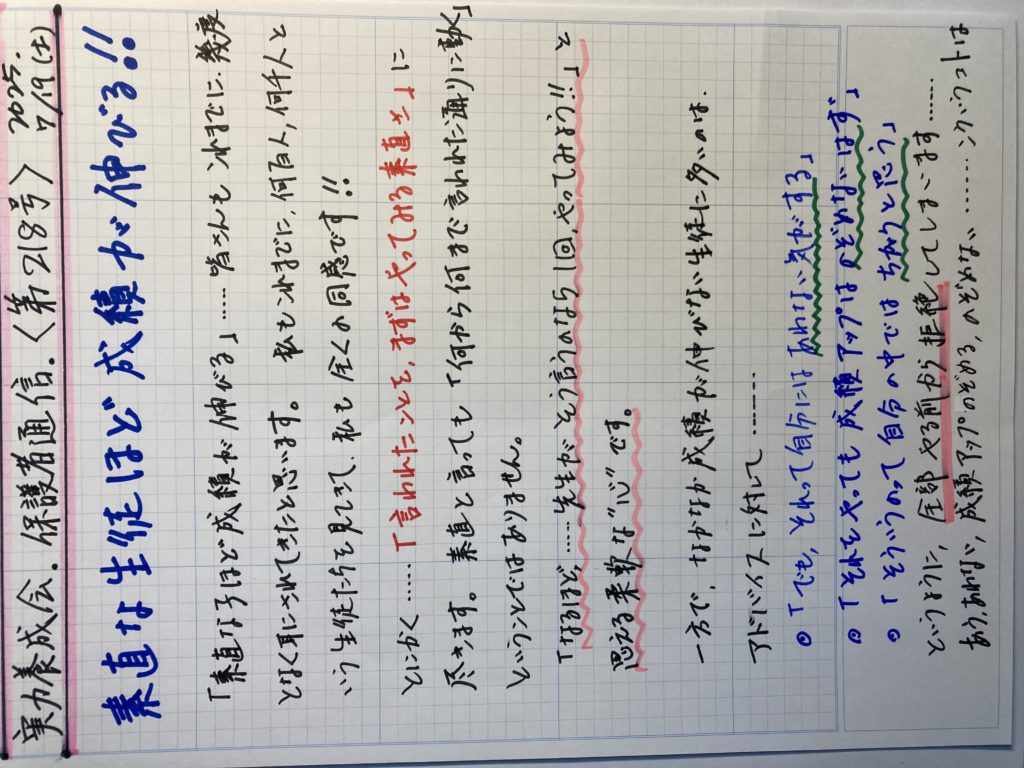 実力養成会.保護者通信.〈第218号〉 2025. 7/19(土)
素直な生徒ほど成績が伸びる!!
「素直な子ほど成績が伸びる」……皆さんもこれまでに、幾度
となく耳にされてきたと思います。 私もこれまでに、何百人,何千人と
いう生徒たちを見てきて、私も全くの同感です!!
とにかく……「言われたことを,まずはやってみる素直さ」に
尽きます。 素直と言っても「何から何まで言われた通りに動く」
ということではありません。
「なるほど,……先生がそう言うのなら1回,やってみよう!!」と
思える柔軟な“心”です。
一方で、なかなか成績が伸びない生徒に多いのは.
アドバイスに対して………
◎「でも,それって自分にはあわない気がする」
◎「それをやっても成績アップはのぞめないはず」
◎「そういうのって自分の中ではちがうと思う」
というように、全部やる前から拒絶してしまいます……
あう,あわない,成績アップのぞめる,のぞめない……こういうコトは